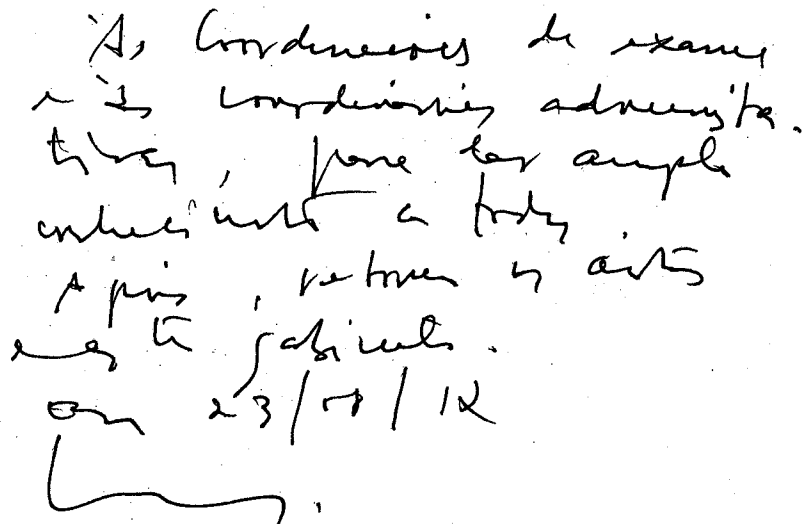 Às Coordenações de exame
e às coordenações administra-
tivas, para dar amplo
conhecimento a todos
Após, retornem os autos
a este gabinete.
em 23/08/12